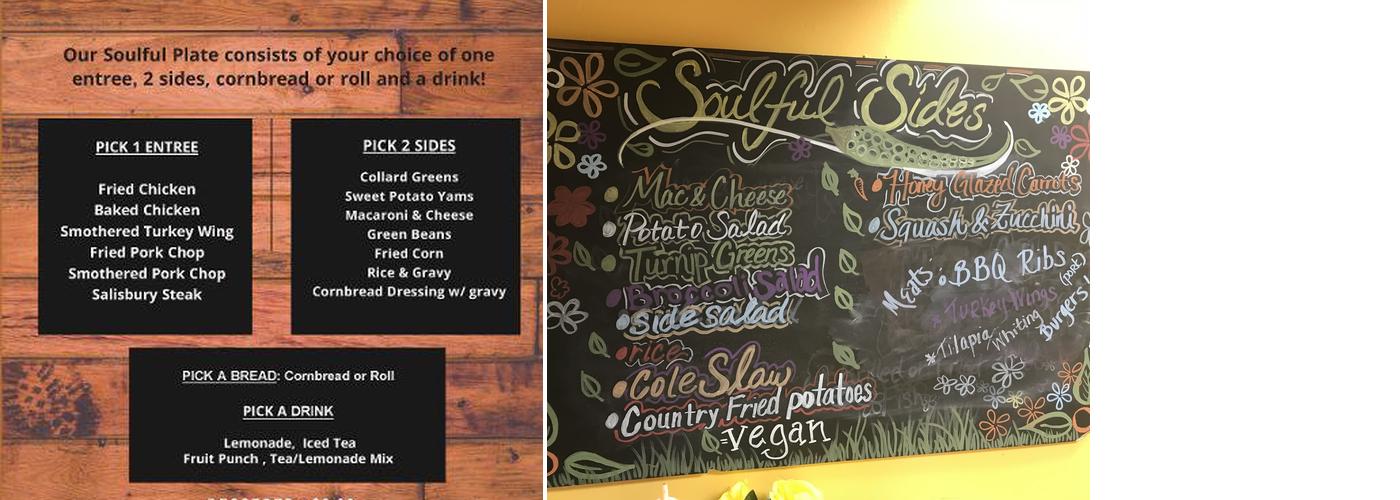 Our Soulful Plate consists of your choice of one
entree, 2 sides, cornbread or roll and a drink!
PICK 1 ENTREE
Fried Chicken
Baked Chicken
Smothered Turkey Wing
Fried Pork Chop
Smothered Pork Chop
Salisbury Steak
PICK 2 SIDES
Collard Greens
Sweet Potato Yams
Macaroni & Cheese
Green Beans
Fried Corn
Rice & Gravy
Cornbread Dressing w/ gravy
PICK A BREAD: Cornbread or Roll
PICK A DRINK
Lemonade, Iced Tea
Fruit Punch , Tea/Lemonade Mix
Soulful Sides
Mac & Cheese
Potato Salad
Turnip Greens
Broccoli Salad
Side Salad
rice
Cole Slaw
Country Fried potatoes
vegan
Honey Glazed Carrots
Squash & Zucchini
Meats:
BBQ Ribs
(pork)
Turkey Wings
Tilapia
Whiting
Burgers